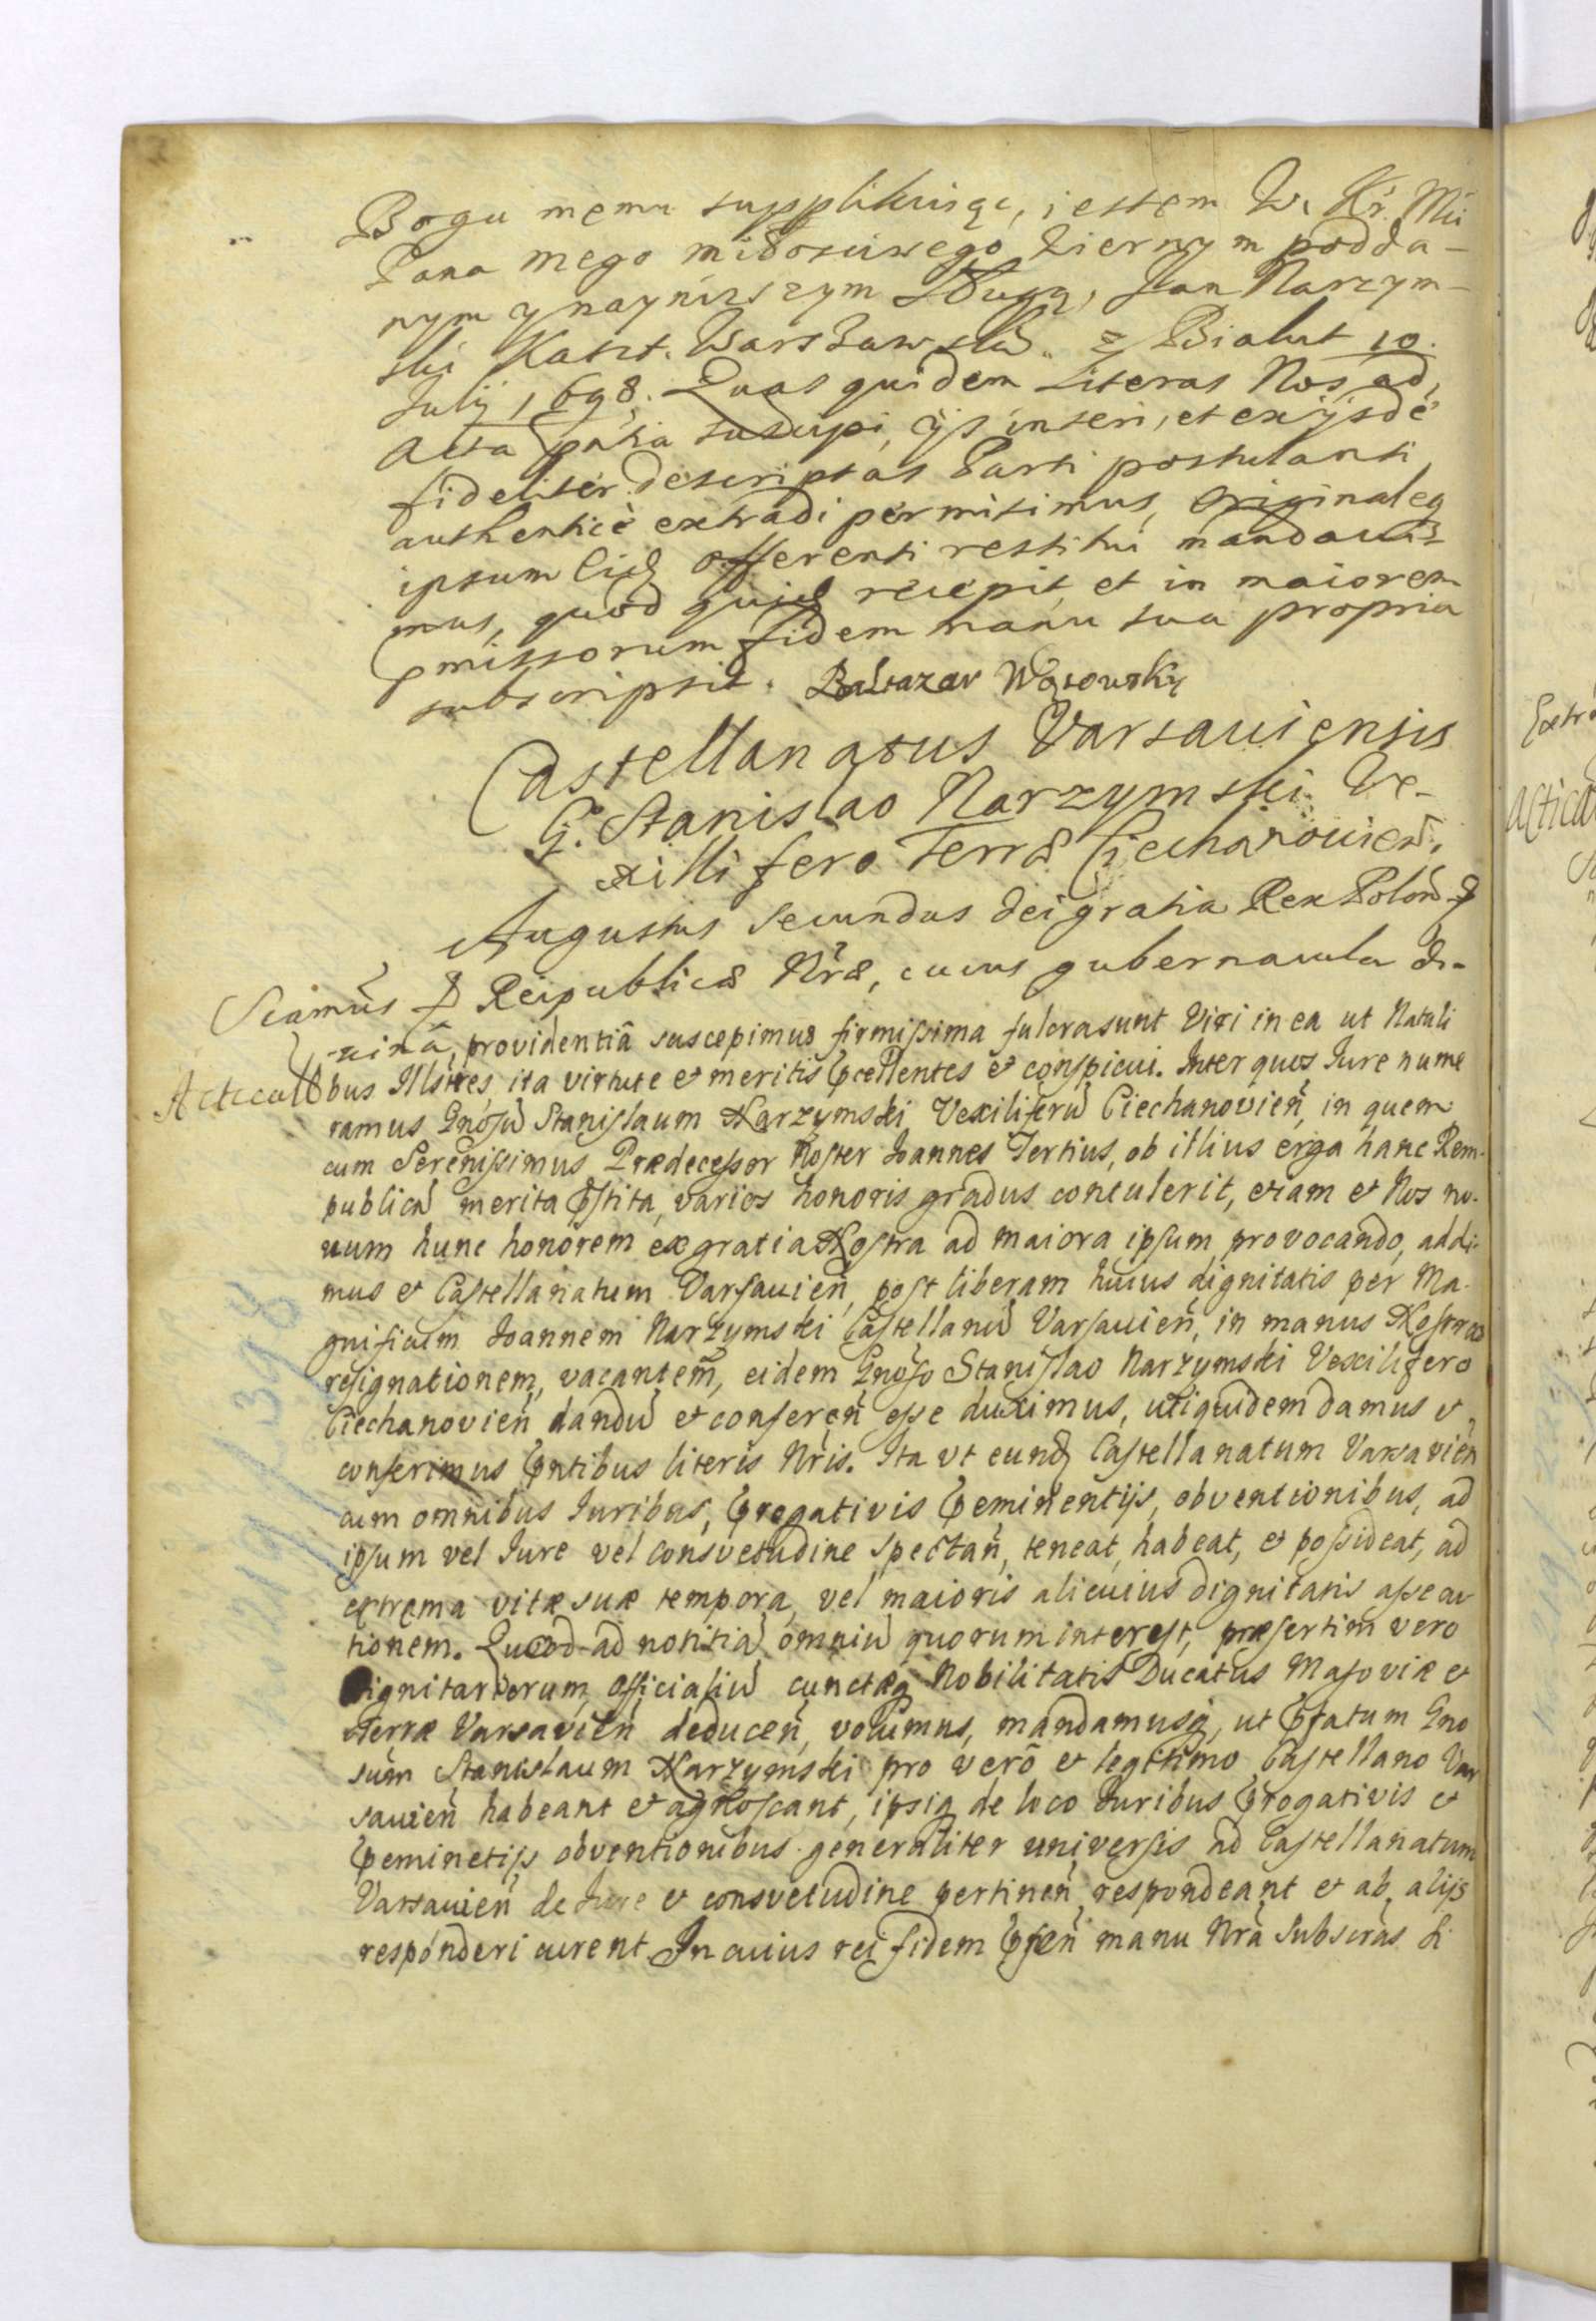 Bogu memu supplikuiąc, iestem W. Kr. Mći
Pana mego miłosciwego wiernym podda-
nym y nayniższym sługą, Jan Narzym-
ski Kaszt. Warszawski. z Białut 10.
Julij 1698. Quas quidem Literas Nos ad
Acta pntia suscipi, ijs inseri, et ex ijsdē
fideliter descriptas Parti postulanti
authenticè extradi permisimus, originaleq
ipsum eid offerenti restitui mandaui-
mus, quod quid recepit et in maiorem
pmissorum fidem manu sua propria
subscripsit. Baltazar Wąsowsky
Castellanatus Varsauiensis
G. Stanislao Narzymski Ve-
xillifero Terræ Ciechanouień.
Augustus Secundus Dei gratia Rex Polon &
Reipublicæ Nræ, cuius gubernacula di-
uinâ providentiâ suscepimus firmissima fulcra sunt Viri in ea ut Natali
Acticatt
bus Illstres, ita virtute et meritis pcellentes et conspicui. Inter quos Jure nume
ramus Gnosū Stanislaum Narzymski Vexiliferū Ciechanovień, in quem
cum Serenissimus Prædecessor Noster Joannes Tertius, ob illius erga hanc Rem-
publicā merita pstita, varios honoris gradus contulerit, etiam et Nos no-
uum hunc honorem ex gratia Nostra ad maiora ipsum provocando, addi-
mus et Castellanatum Varsauień, post liberam huius dignitatis per Ma-
gnificum Joannem Narzymski Castellanū Varsauień, in manus Nostras
resignationem, vacantem, eidem Gnoso Stanislao Narzymski Vexilifero
Ciechanovień dandū et confereń esse duximus, uti quidem damus et
conferimus pntibus literis Nris. Ita vt eund Castellanatum Varsavień
cum omnibus Juribus, progativis peminentijs, obventionibus, ad
ipsum vel Jure vel consvetudine spectań, teneat, habeat, et possideat, ad
extrema vitæ suæ tempora, vel maioris alicuius dignitatis assecu
tionem. Quod ad notitiā omniū quorum interest, præsertim vero
Dignitariorum, Officialiū cunctæq Nobilitatis Ducatus Masoviæ et
Terræ Varsavień deduceń, volumus, mandamusq, ut pfatum Gno
sum Stanislaum Narzymski pro vero et legitimo Castellano Var
sauień habeant et agnoscant, ipsiq de loco Juribus progativis et
peminetijs obventionibus generaliter universis ad Castellanatum
Varsauień de Jure et consvetudine pertineń, respondeant et ab alijs
responderi curent. In cuius rei fidem pseń manu Nra Subscras. Si